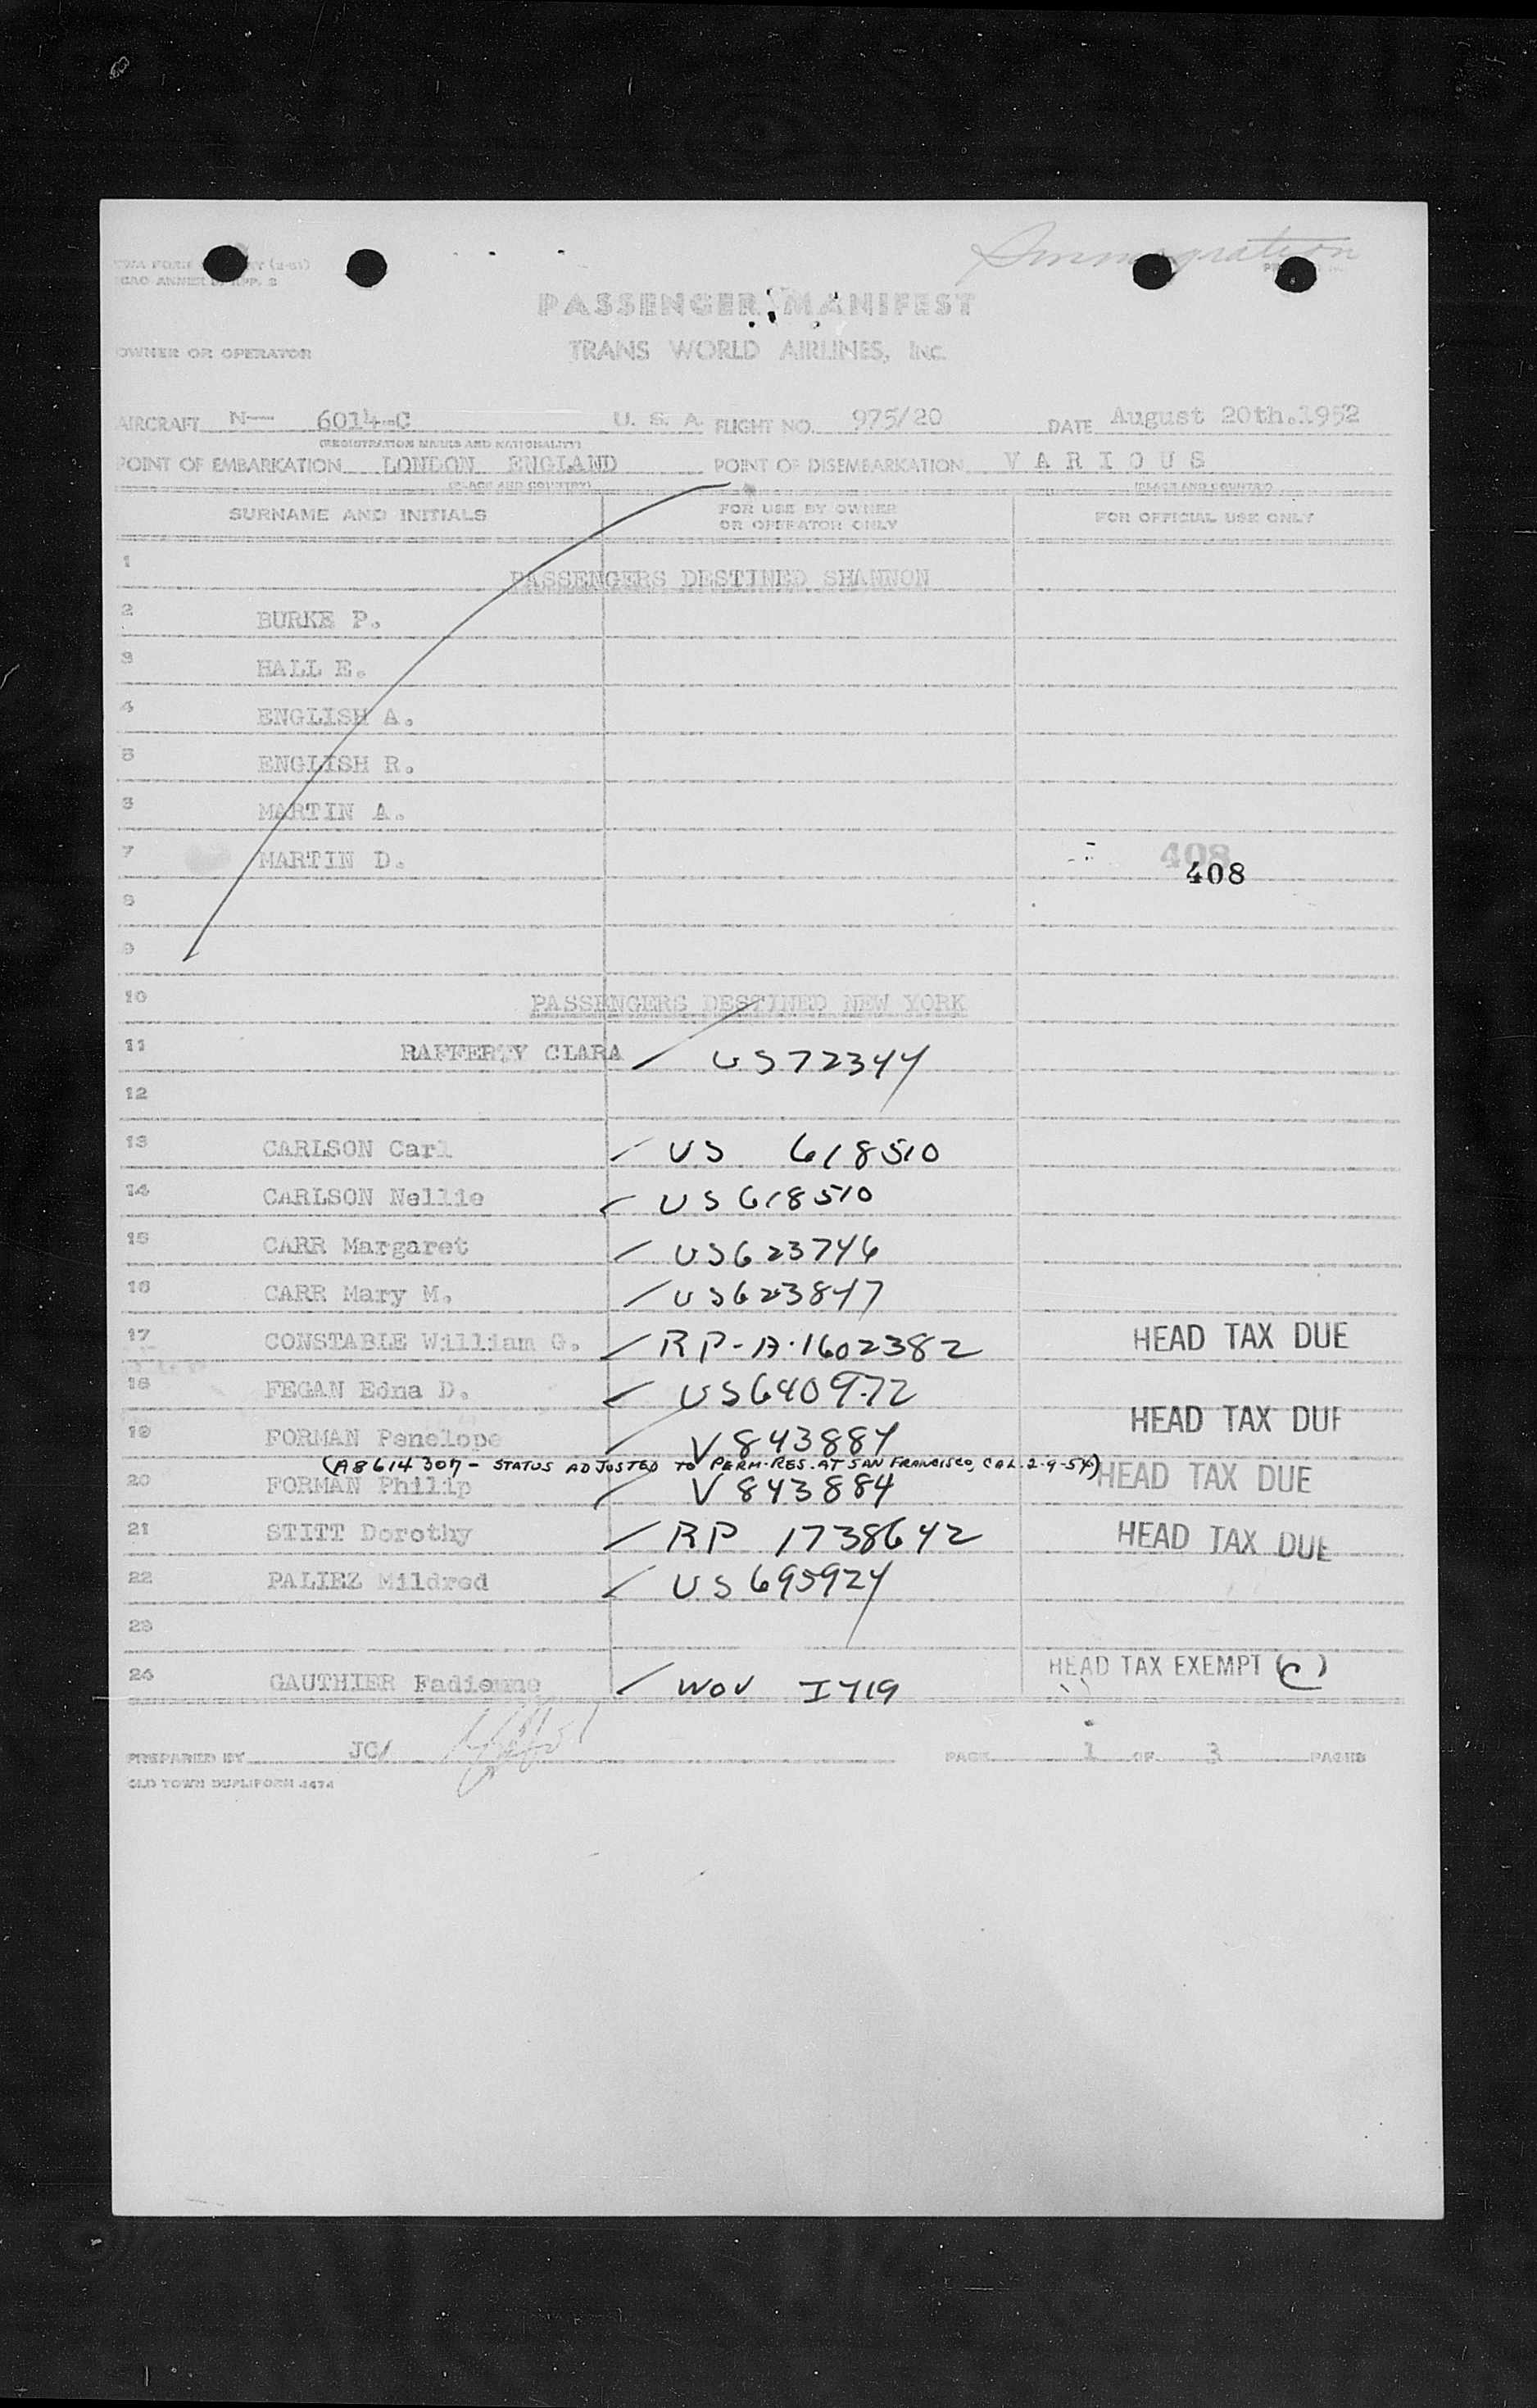 Immigration
TWA FORM (2-51)
ICAO ANNEX 9, APP. 2
PASSENGER MANIFEST
OWNER OR OPERATOR TRANS WORLD AIRLINES, INC.
AIRCRAFT N— 6014-C U. S. A. FLIGHT NO. 975/20 DATE August 20th.1952
(REGISTRATION MARKS AND NATIONALITY)
POINT OF EMBARKATION LONDON ENGLAND POINT OF DISEMBARKATION V A R I O U S
(PLACE AND COUNTRY) (PLACE AND COUNTRY)
SURNAME AND INITIALS FOR USE BY OWNER OR OPERATOR ONLY FOR OFFICIAL USE ONLY
1 PASSENGERS DESTINED SHANNON
2 BURKE P.
3 HALL E.
4 ENGLISH A.
5 ENGLISH R.
6 MARTIN A.
7 MARTIN D. 408
408
8
9
10 PASSENGERS DESTINED NEW YORK
11 RAFFERTY CLARA US 72344
12
13 CARLSON Carl US 618510
14 CARLSON Nellie US 618510
15 CARR Margaret US 623746
16 CARR Mary M. US 623847
17 CONSTABLE William G. RP-A-1602382 HEAD TAX DUE
18 FEGAN Edna D. US 640972
19 FORMAN Penelope V 843884 HEAD TAX DUE
(A8614307 - STATUS ADJUSTED TO PERM. RES. AT SAN FRANCISCO, CAL. 2-9-54)
20 FORMAN Philip V 843884 HEAD TAX DUE
21 STITT Dorothy RP 1738642 HEAD TAX DUE
22 PALIEZ Mildred US 695924
23
24 GAUTHIER Fadienne WOV I419 HEAD TAX EXEMPT (C)
PREPARED BY JC/ PAGE 1 OF 3 PAGES
OLD TOWN DUPLIFORM 4474